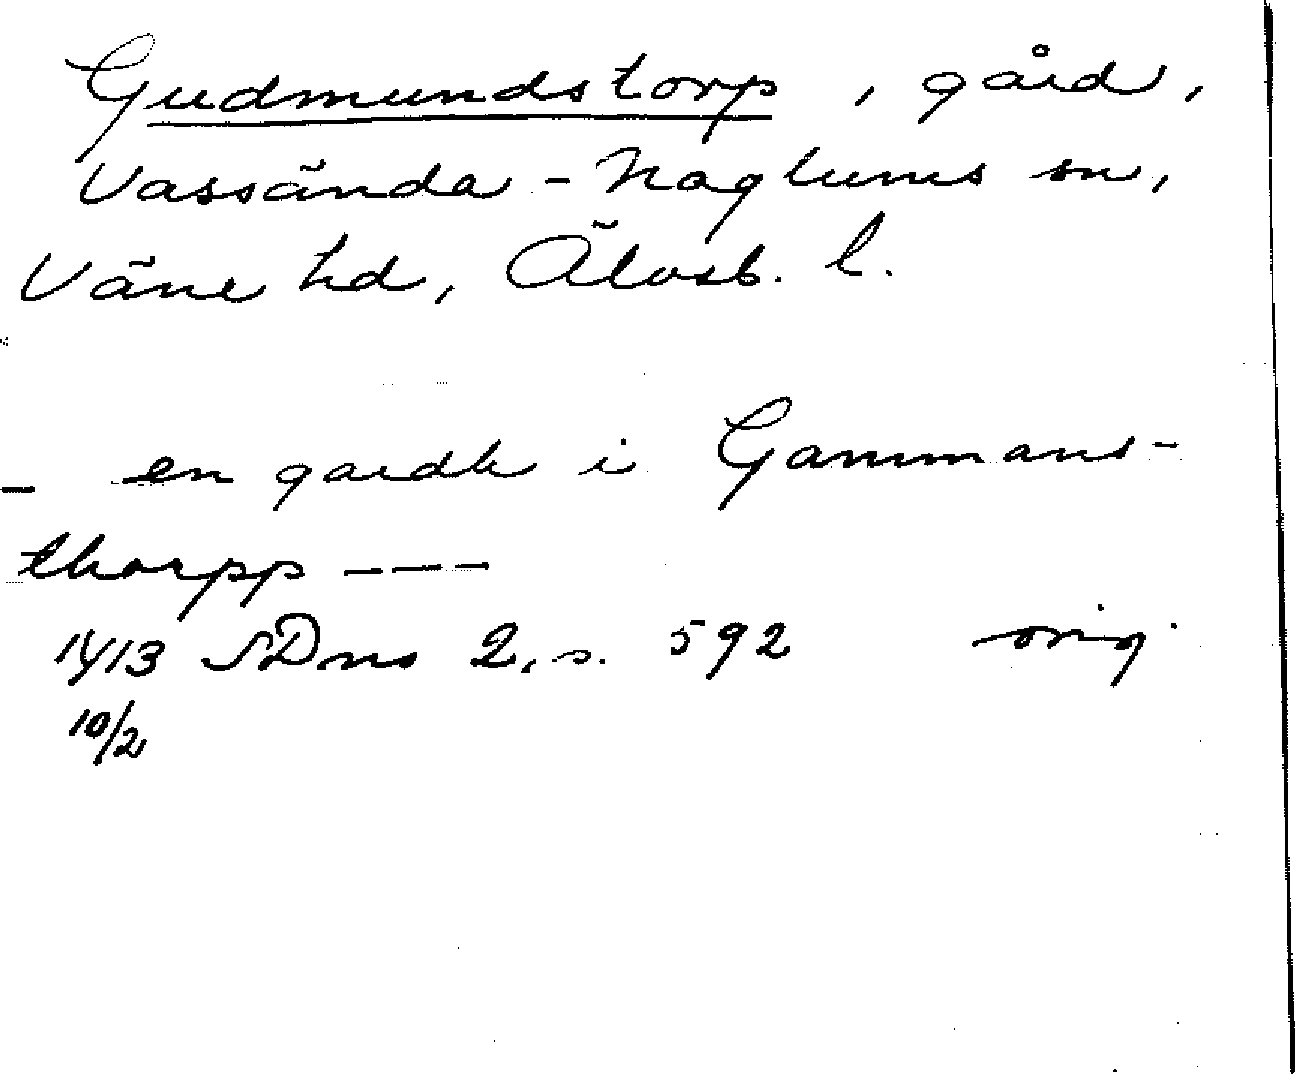 Gudmundstorp, gård,
Vassända-Naglums sn,
Väne hd, Älvsb. l.
- en gardh i Gammans-
thorpp ----
1413 SDns 2, s. 592 orig
10/2